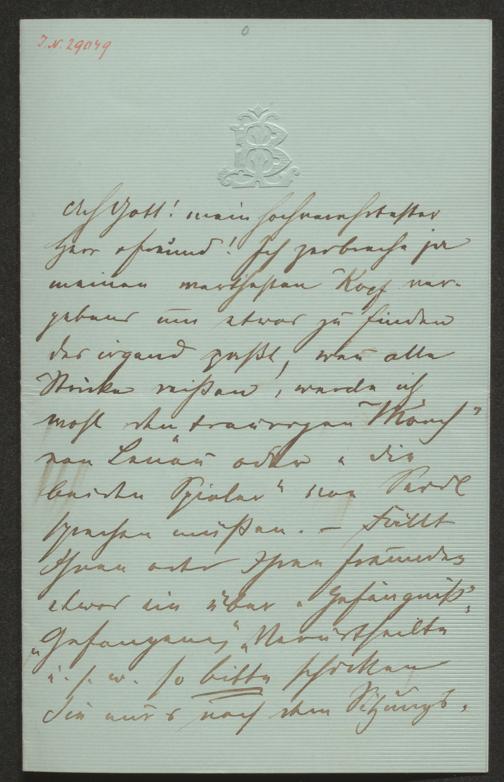 J.N. 29049
0
Ach Gott! mein hochverehrtester
Herr Freund! Ich zerbreche ja
meinen werthesten Kopf ver-
gebens um etwas zu finden
das irgend paßt, wenn alle
Stricke reißen, werde ich
wohl den traurigen "Mönch"
von Lenau oder "die
beiden Spieler" von Seidl
sprechen müßen. – Fällt
Ihnen oder Ihren Freunden
etwas ein über "Gefängniß",
"Gefangene", "Verurtheilte
u. s. w. so bitte schicken
Sie mir's nach dem Sitzungs-